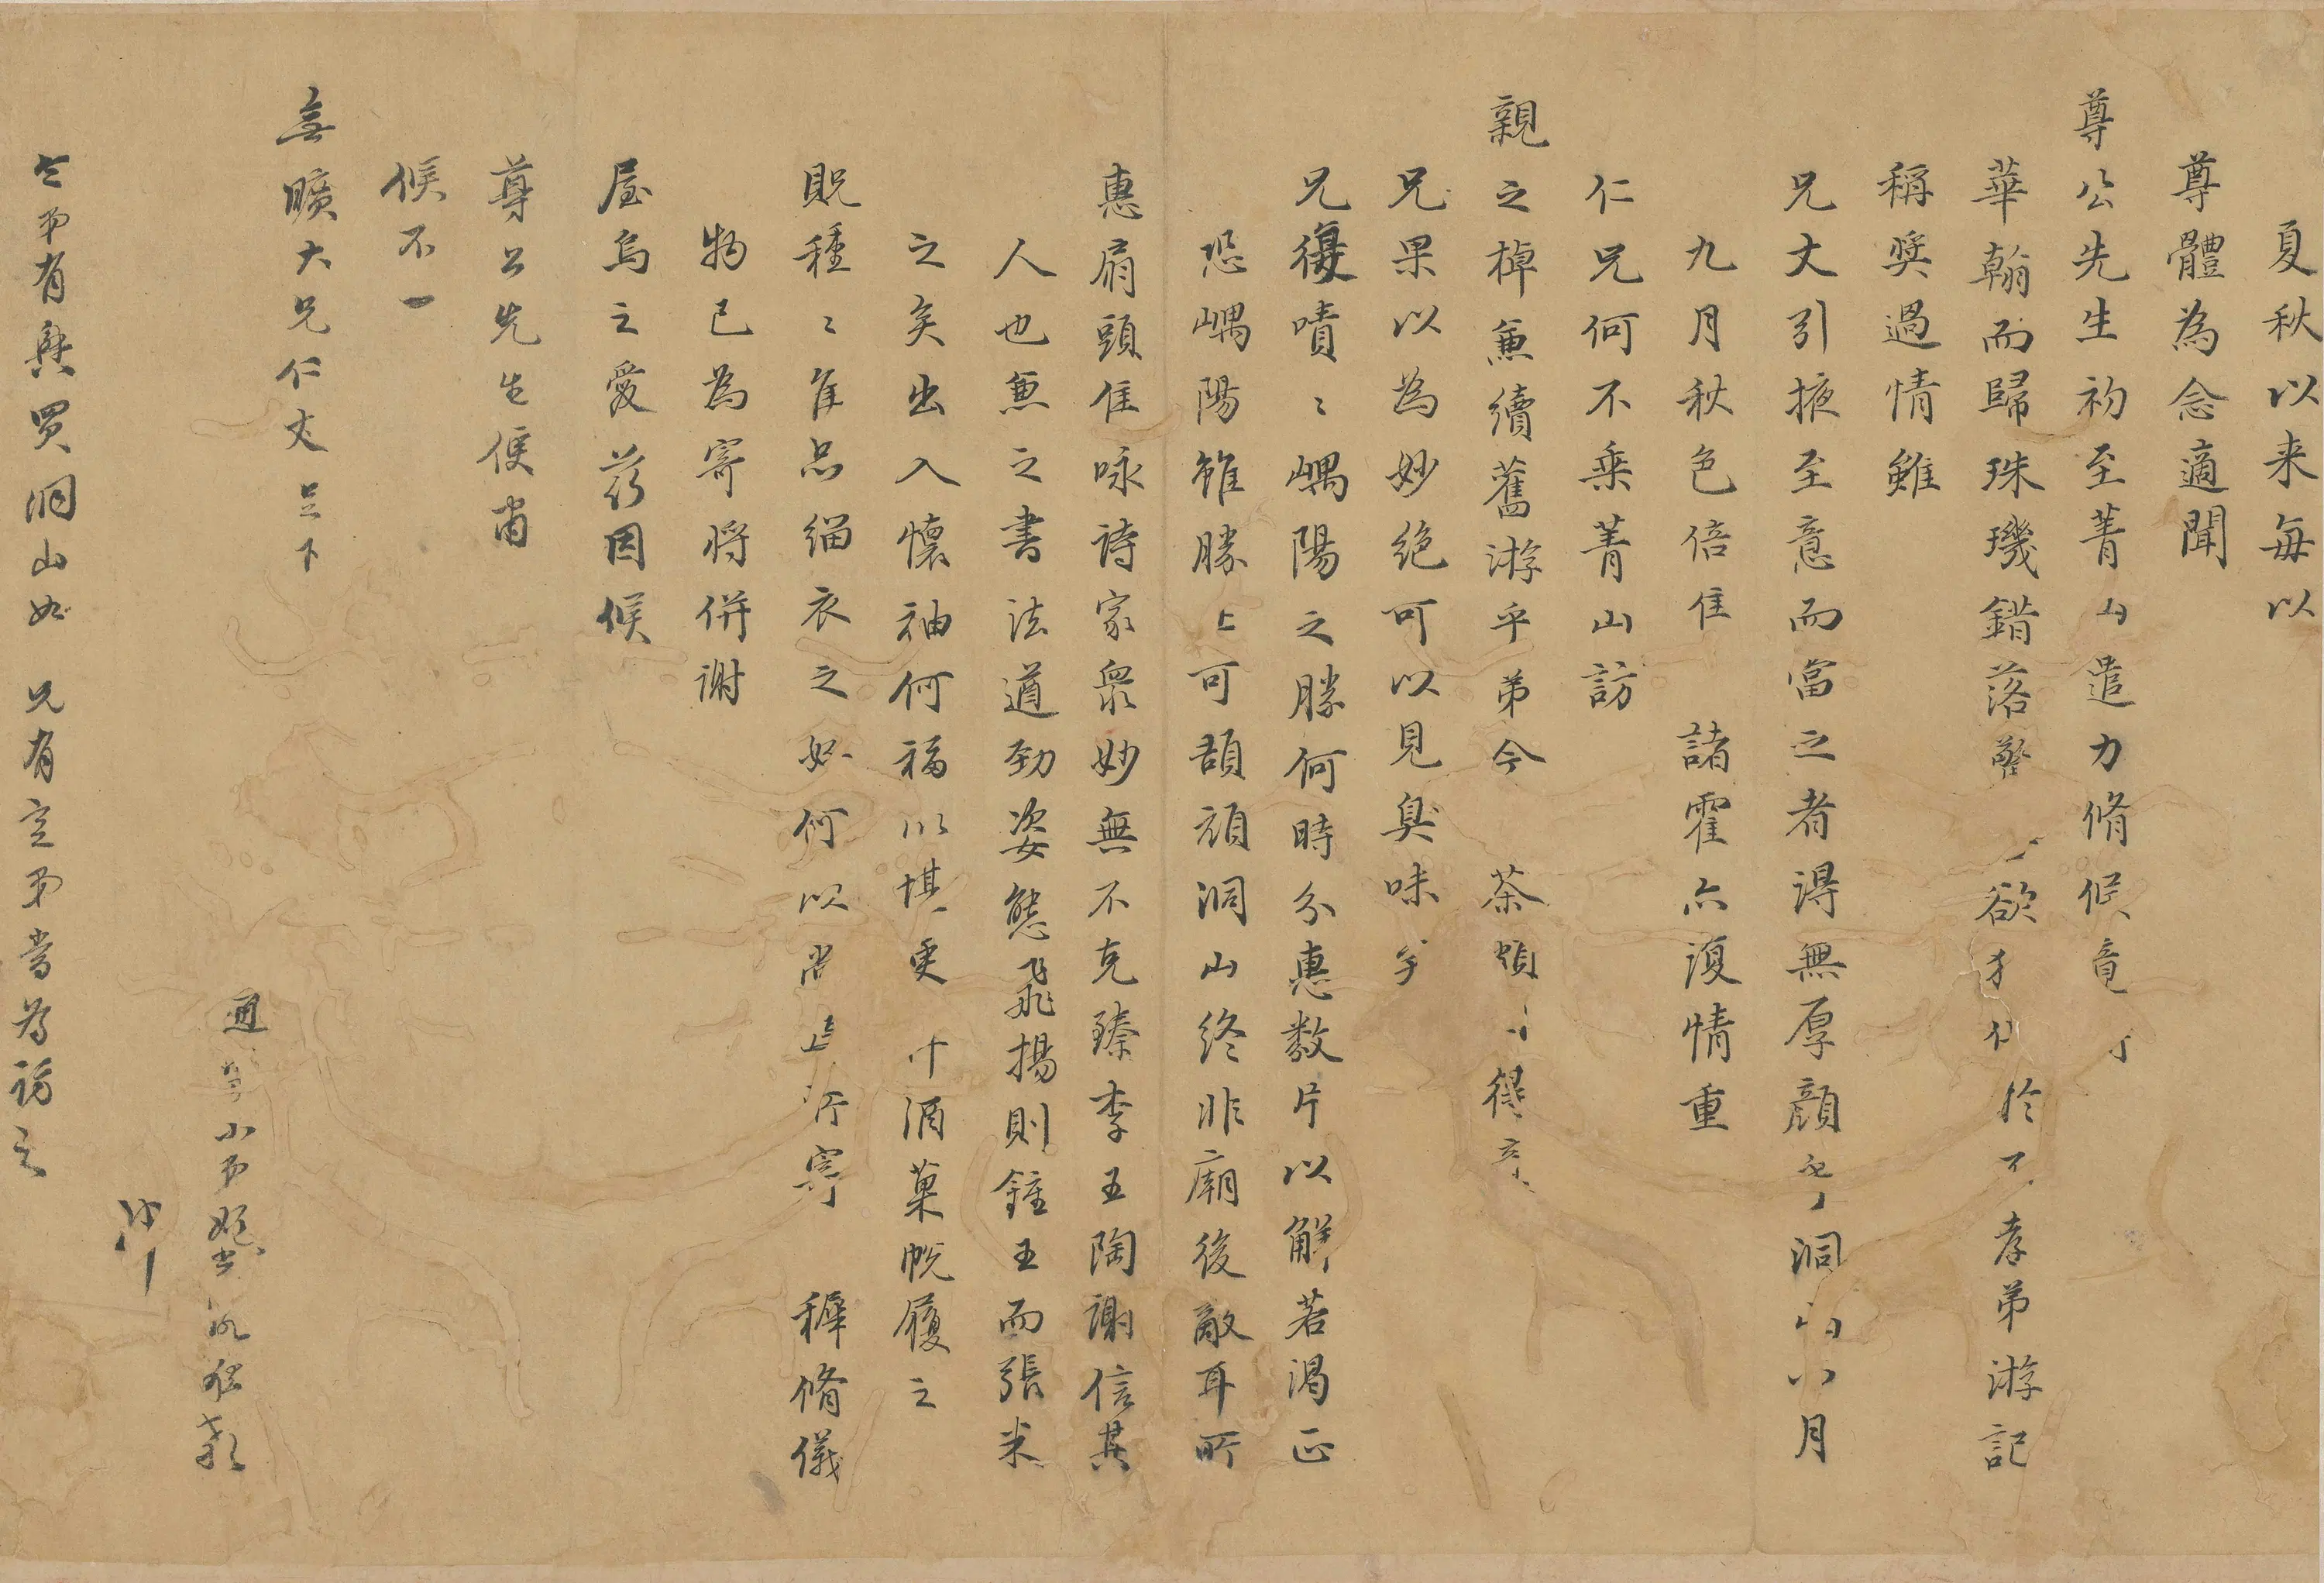 夏秋以来每以
尊體為念適聞
尊公先生初至菁山遣力脩候竟
華翰而歸珠璣錯落 欲 於不孝弟游記
稱奨過情雖
兄丈引掖至意而當之者得無厚顔乎洞山八月
九月秋色倍佳 諸霍亦復情重
仁兄何不乘菁山訪
親之棹兼續舊游乎弟今 茶頗 得
兄果以為妙絶可以見臭味
兄復嘖〻嵎陽之勝何時分惠数片以解若渴正
恐嵎陽雖勝上可頡頏洞山终非廟後敵耳所
惠扇頭佳咏詩家衆妙無不克臻李王陶謝信其
人也兼之書法遒劲姿態飛揚則鍾王而張米
之矣出入懷袖何福以堪更 酒菓帨履之
貺種〻隹品緇衣之好何以尚 寄 穉脩儀
物已為寄将併謝
屋烏之愛兹因候
尊公先生便肅
候不一
無曠大兄仁丈足下
通 小弟
冲
令弟有興買洞山如 兄有意弟當為訪之